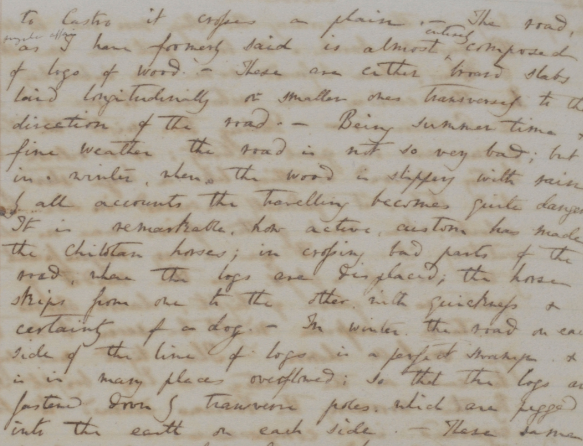 to Castro it crosses a plain. — The road,
as I have formerly said is almost entirely composed
of logs of wood. — These are either broad slabs
laid longitudinally or smaller ones transversely to the
direction of the road. — Being summer time &
fine weather the road is not so very bad; but
in winter, when the wood is slippery with rain
by all accounts the travelling becomes quite danger
It is remarkable, how active, custom has made
the Chilotan horses; in crossing bad parts of the
road, where the logs are displaced; the horse
skips from one to the other with quickness &
certainty of a dog. — In winter the road on each
side of the line of logs is a perfect swamp &
is in many places overflowed; so that the logs are
fastened down by transverse poles, which are pegged
into the earth on each side. — These